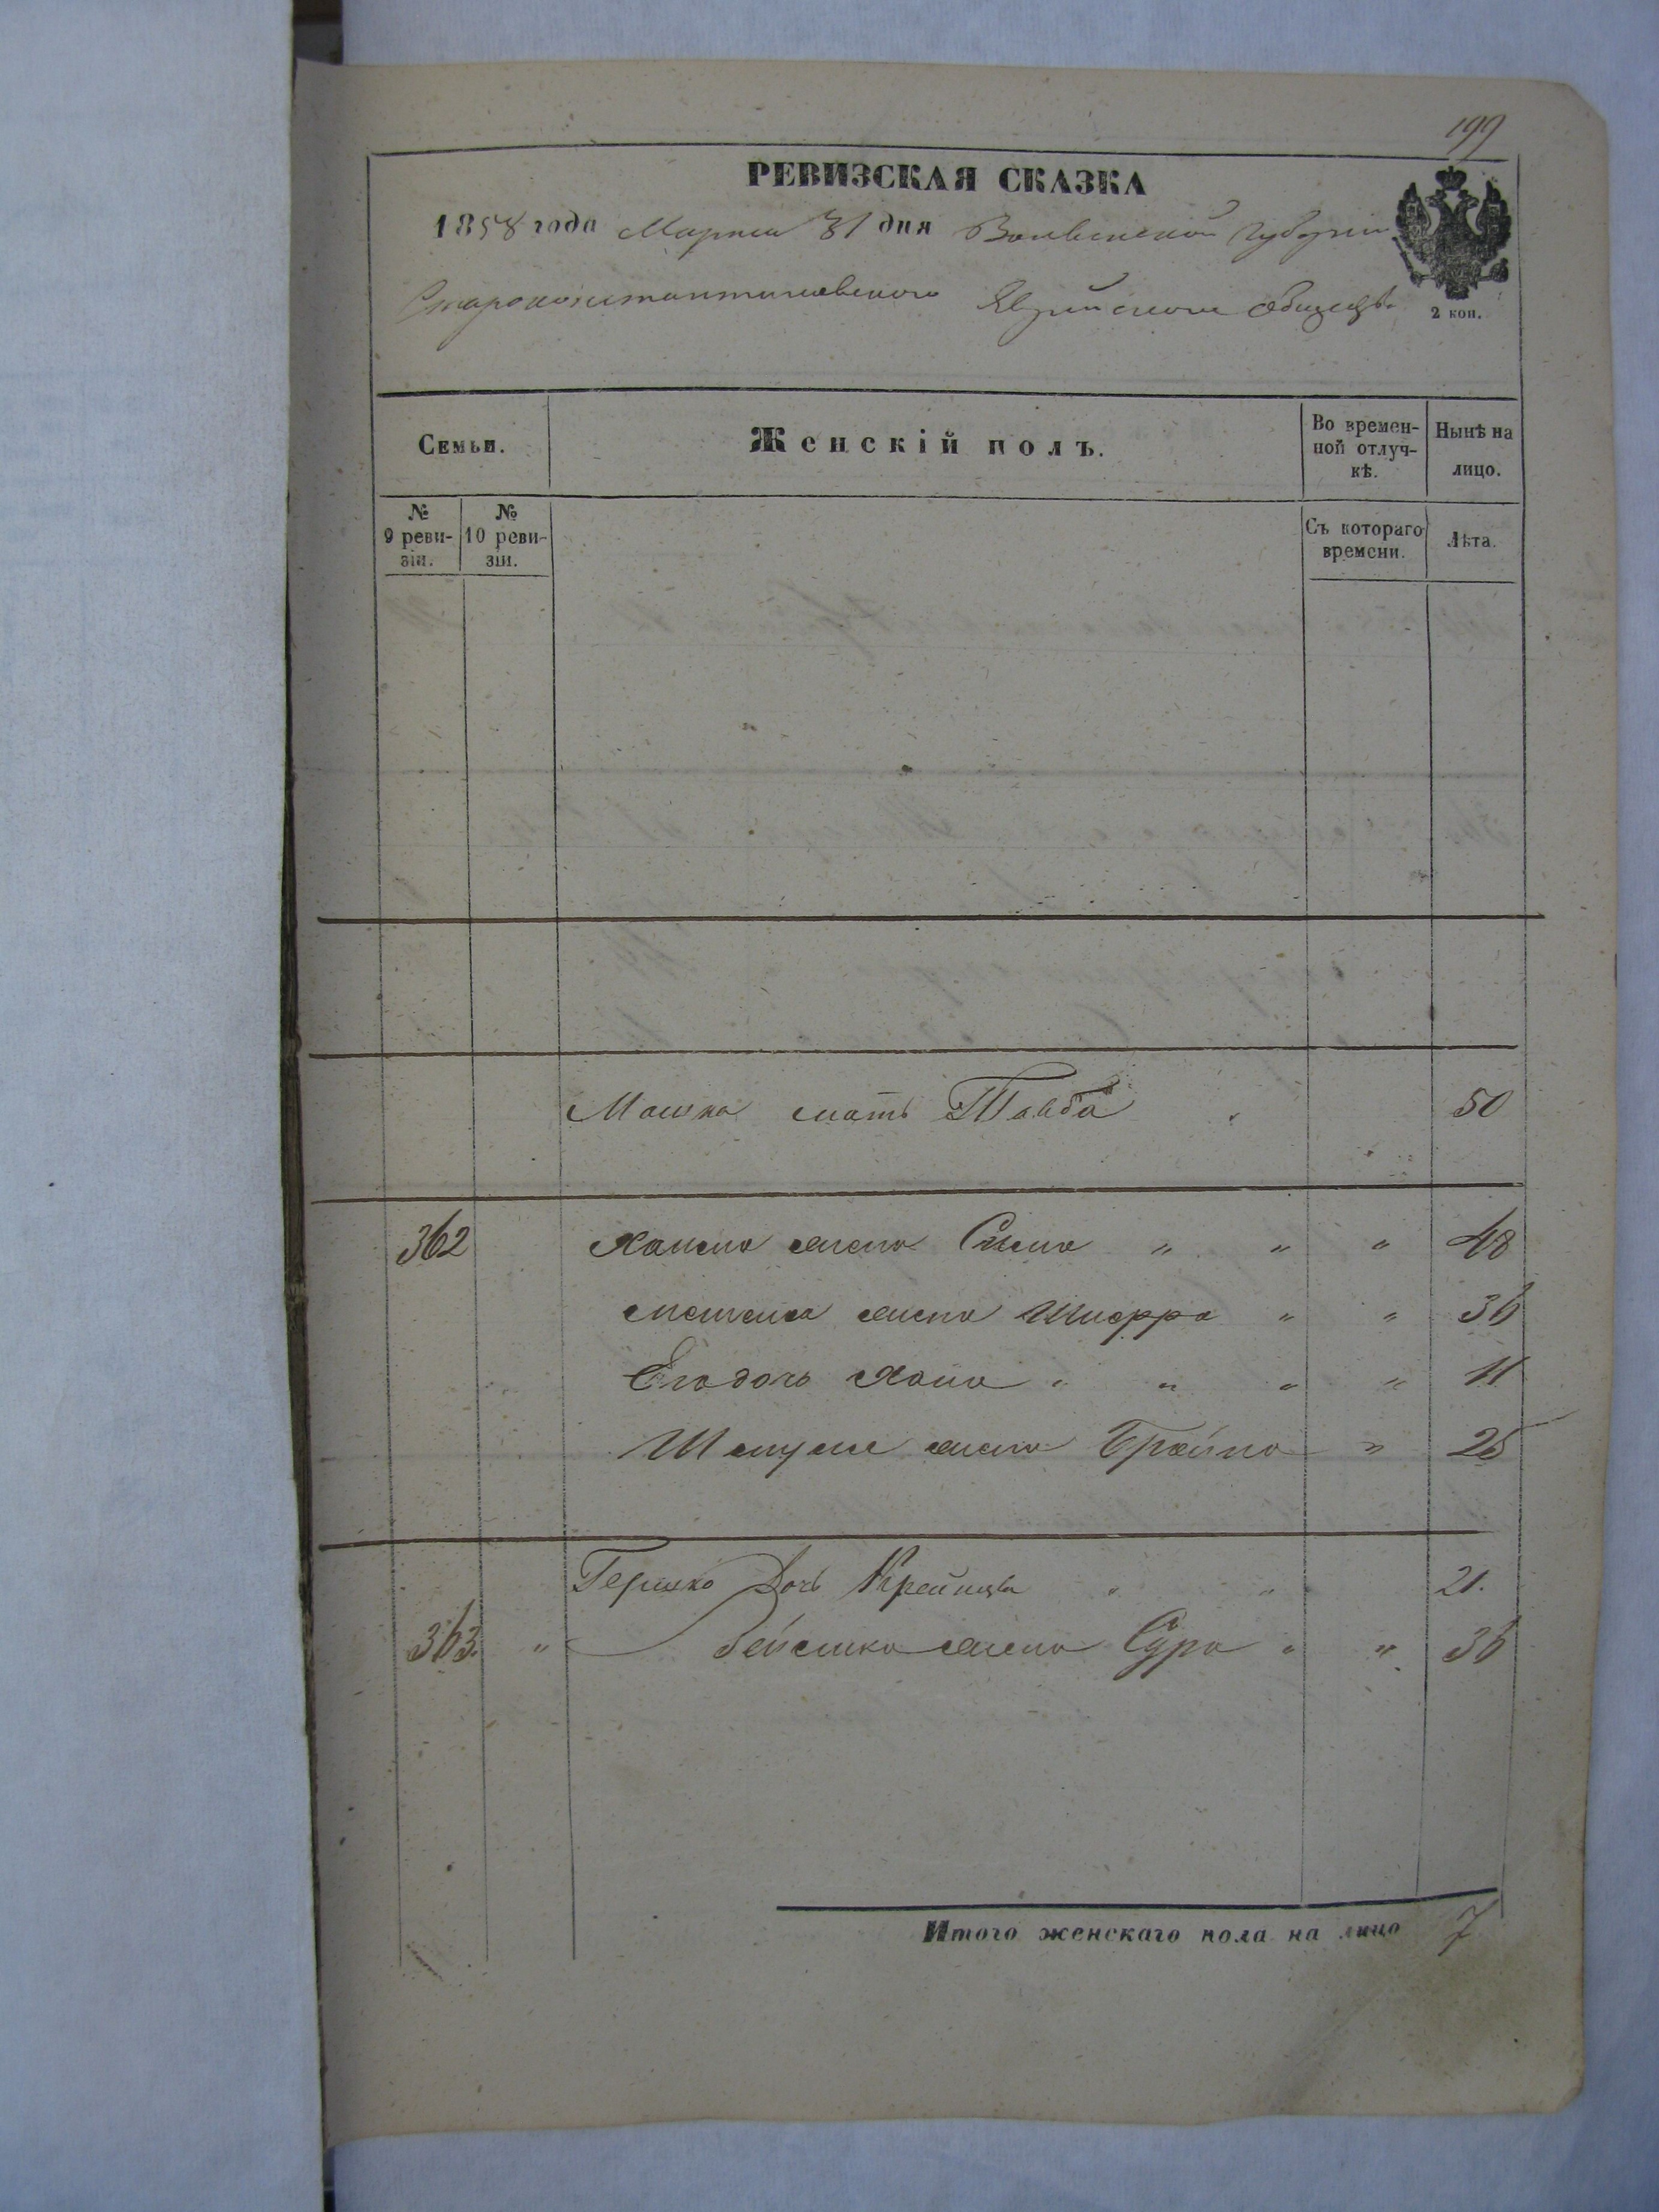 199
РЕВИЗСКАЯ СКАЗКА
1858 года Марта 31 дня Волынской Губерніи
Староконстантиновского Еврейского Общества
2 коп.
Семьи.
Женскій полъ.
Во времен-
ной отлуч-
кѣ.
Нынѣ на
лицо.
№
9 реви-
зіи.
№
10 реви-
зіи.
Съ котораго
времени.
Лѣта.
мать Тавба 50
362 жена 48
жена Шифра " " 36
Его дочь Хана " " " " 11
жена Брайна " 25
Гершко Дочь Крейнця " " 21.
363. " жена Сура " " 36
Итого женскаго пола на лицо 7